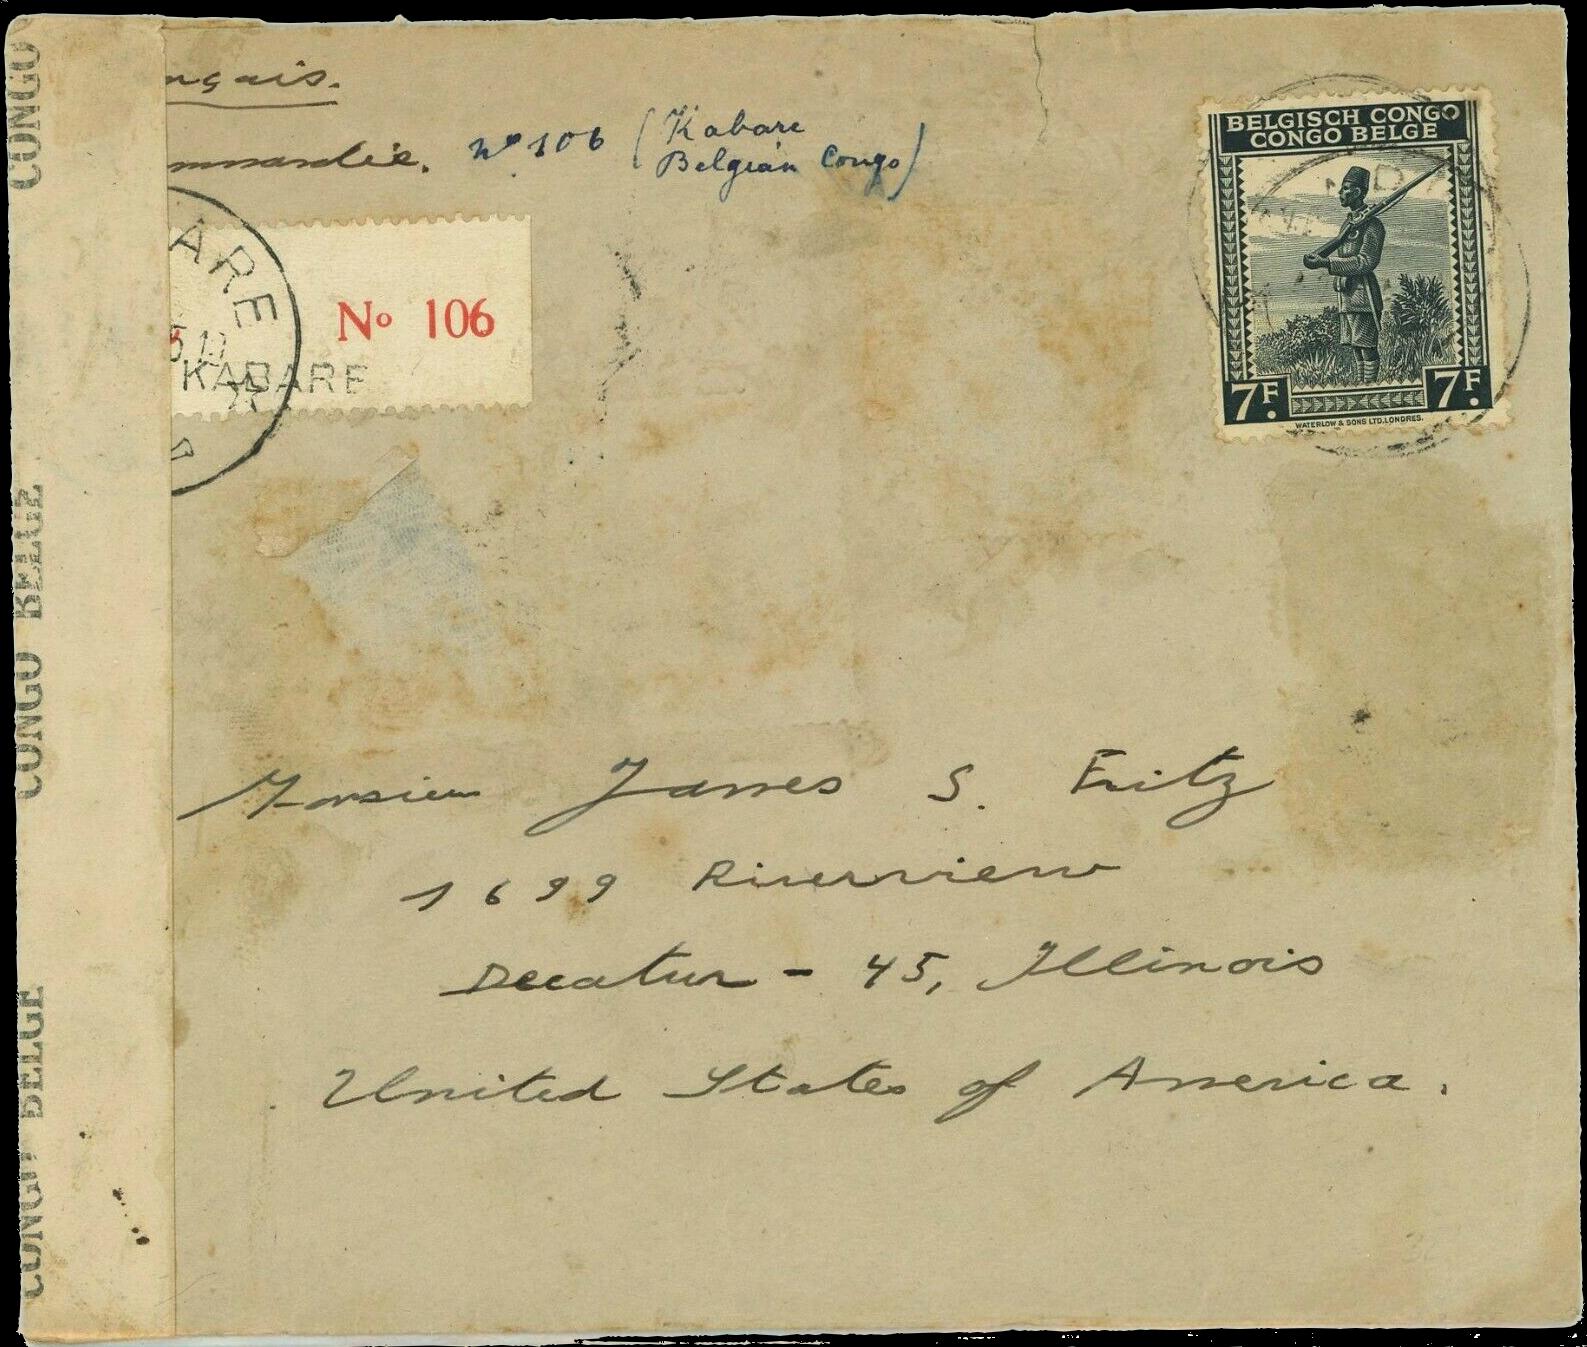 ngais.
ommandée. No 106 (Kabare
Belgian Congo)
BELGISCH CONGO
CONGO BELGE
7F. 7F.
WATERLOW & SONS LTD. LONDRES.
ARE
No 106
KABARE
Monsieur James S. Fritz
1699 Riverview
Decatur - 45, Illinois
United States of America.
CONGO
CONGO BELGE
CONGO BELGE